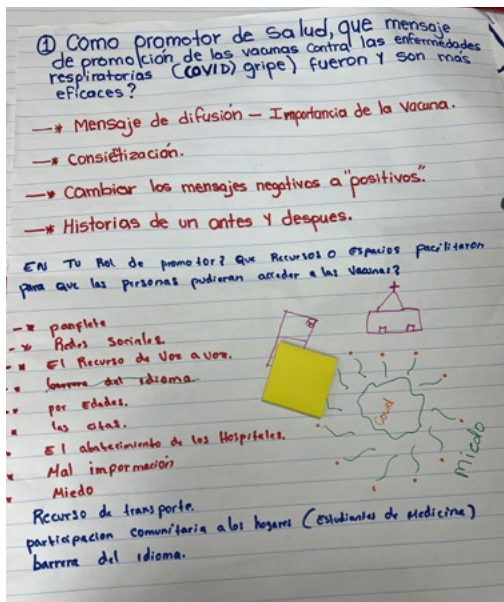 ① Como promotor de salud, que mensaje
de promoción de las vacunas contra las enfermedades
respiratorias (COVID) gripe) fueron y son más
eficaces?
—* Mensaje de difusión – Importancia de la vacuna.
—* Consietización.
—* Cambiar los mensajes negativos a "positivos".
—* Historias de un antes y despues.
EN TU Rol de promotor? Que Recursos o espacios facilitaron
para que las personas pudieran acceder a las vacunas?
-* panflete
-* Redes Sociales.
* El Recurso de Voz a voz.
* barrera del idioma
* por Edades.
* las citas.
* El abatecimiento de los Hospitales.
* Mal impormación
* Miedo
Recurso de transporte.
participacion comunitaria a los hogares (Estudiantes de Medicina)
barrera del idioma.
Covid
miedo